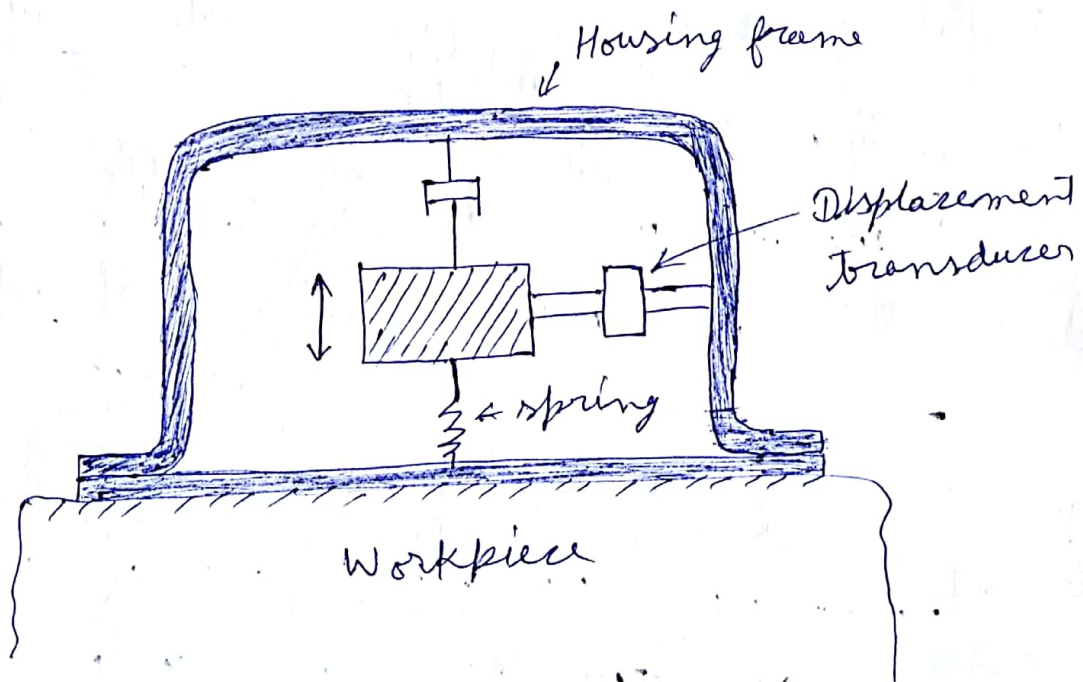 Housing frame
Displacement
transducer
spring
Workpiece